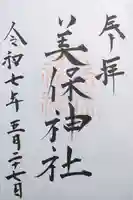 奉拝
美保神社
令和七年三月二十七日